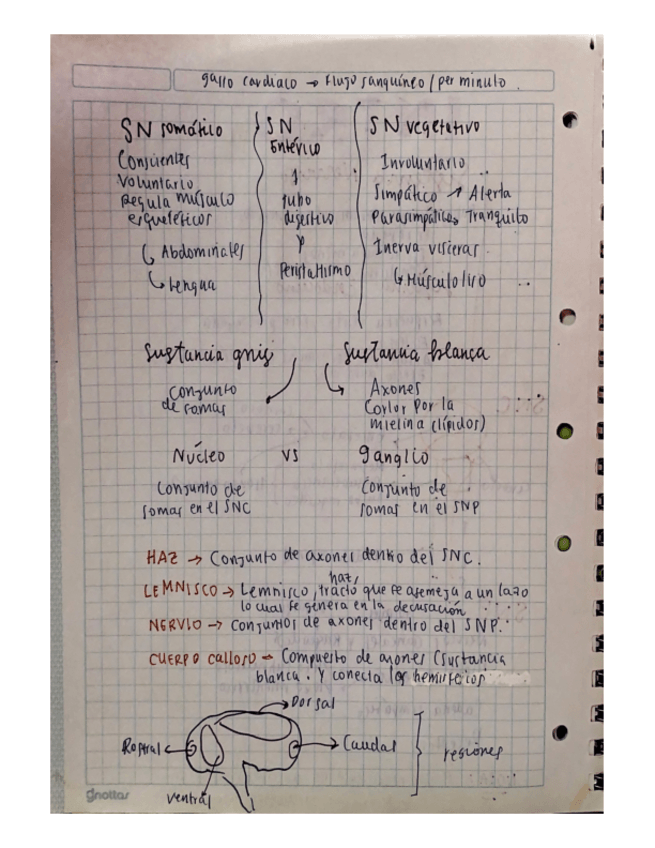 gasto cardiaco → Flujo sanguíneo / per minuto.
SN somático
Conscientes
Voluntario
Regula músculo
esqueléticos
Abdominales
Lengua
SN
Entérico
↑
tubo
digestivo
y
Peristaltismo
SN vegetativo
Involuntario
Simpático ↗ Alerta
Parasimpático, Tranquito
Inerva visceras
↳ Músculo liso
Sustancia gris
Sustancia blanca
conjunto
de somas
Axones
Corlor por la
mielina (lípidos)
Núcleo vs ganglio
Conjunto de
somas en el SNC
Conjunto de
somas en el SNP
HAZ → Conjunto de axones dentro del SNC.
haz,
LEMNISCO → Lemnisco, tracto que se asemeja a un lazo
lo cual se genera en la decusación
NERVIO → Conjuntos de axones dentro del SNP.
CUERPO CALLOSO → Compuesto de axones (sustancia
blanca. y conecta los hemisferios
Dorsal
Rostral
Caudal
regiones
ventral
gnottas